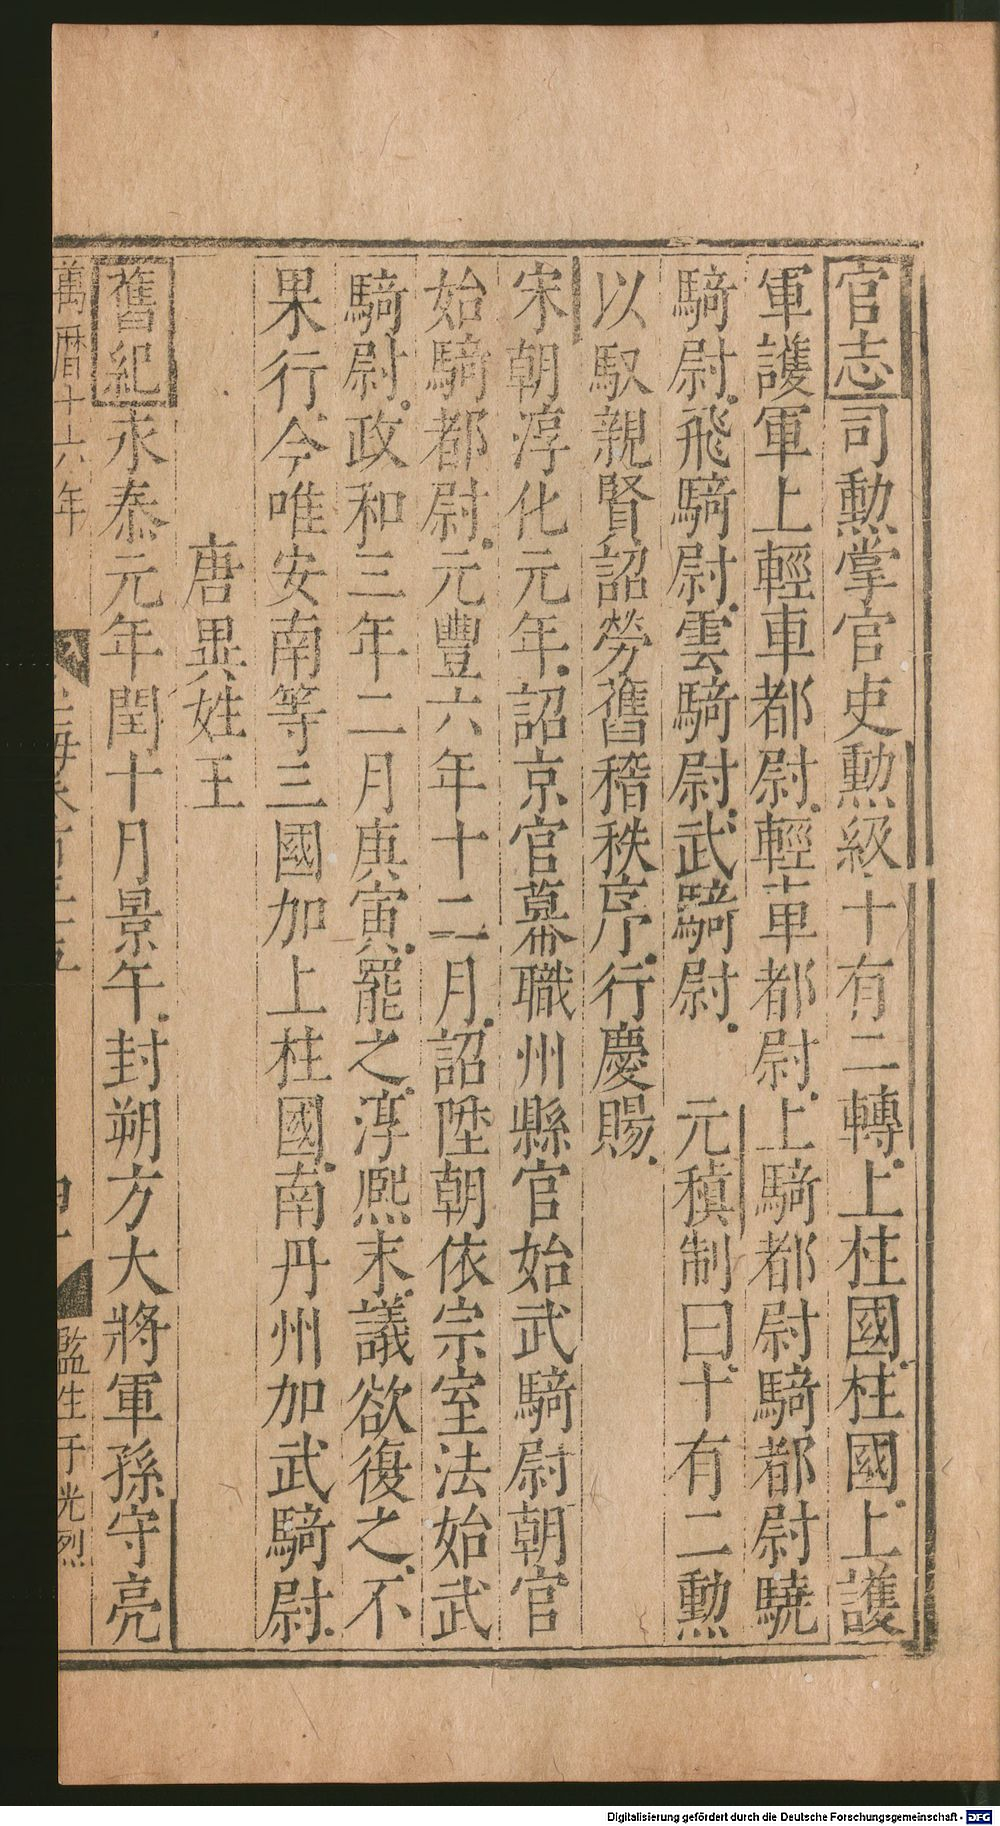 官志司勲掌官吏勲級十有二轉上柱國柱國上護
軍護軍上輕車都尉輕車都尉上騎都尉騎都尉驍
騎尉飛騎尉雲騎尉武騎尉 元稹制曰十有二勲
以馭親賢詔勞舊稽秩序行慶賜
宋朝淳化元年詔京官幕職州縣官始武騎尉朝官
始騎都尉元豐六年十二月詔陞朝依宗室法始武
騎尉政和三年二月庚寅罷之淳熙末議欲復之不
果行今唯安南等三國加上柱國南丹州加武騎尉
唐異姓王
舊紀永泰元年閏十月景午封朔方大將軍孫守亮
萬曆十六年
監生于光烈
Digitalisierung gefördert durch die Deutsche Forschungsgemeinschaft - DFG